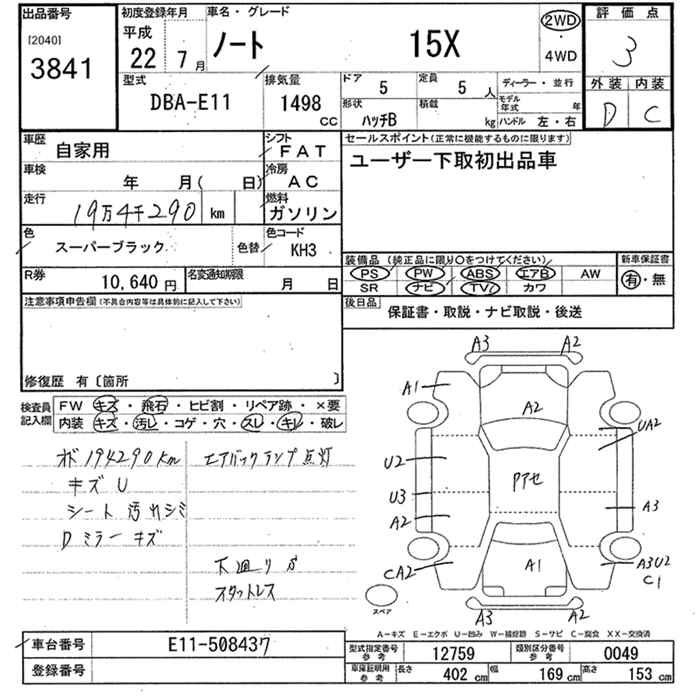 出品番号 初度登録年月 車名・グレード 評価点
[2040] 平成 ノート 15X 2WD 3
3841 22 7月 ・4WD
型式 排気量 ドア 5 定員 5人 ディーラー・並行 外装 内装
DBA-E11 1498 CC 形状 ハッチB 積載 kg モデル年式 年 D C
ハンドル 左・右
車歴 自家用 シフト FAT セールスポイント(正常に機能するものに限ります)
車検 年 月( 日) 冷房 AC ユーザー下取初出品車
走行 19万4千290 km 燃料 ガソリン
色 スーパーブラック 色替 色コード KH3
装備品(純正品に限り○をつけてください) 新車保証書
R券 10,640円 名変通知期限 月 日 PS PW ABS エアB AW 有・無
SR ナビ TV カワ
注意事項申告欄(不具合内容等は具体的に記入して下さい) 後日品 保証書・取説・ナビ取説・後送
修復歴 有〔箇所 〕
検査員記入欄 FW キズ・飛石・ヒビ割・リペア跡・×要
内装 キズ・汚レ・コゲ・穴・スレ・キレ・破レ
オド 194290km エアバックランプ点灯
キズ U
シート 汚れシミ
Dミラー キズ
下廻りS
スタットレス
A3 A2
A1
A2 UA2
U2
Pアセ
U3
A2 A3
CA2 A1 A3U2
C1
スペア A3 A2
A-キズ E-エクボ U-凹み W-補修跡 S-サビ C-腐食 XX-交換済
車台番号 E11-508437 型式指定番号 参考 12759 類別区分番号 参考 0049
登録番号 車庫証明用 参考 長さ 402 cm 幅 169 cm 高さ 153 cm